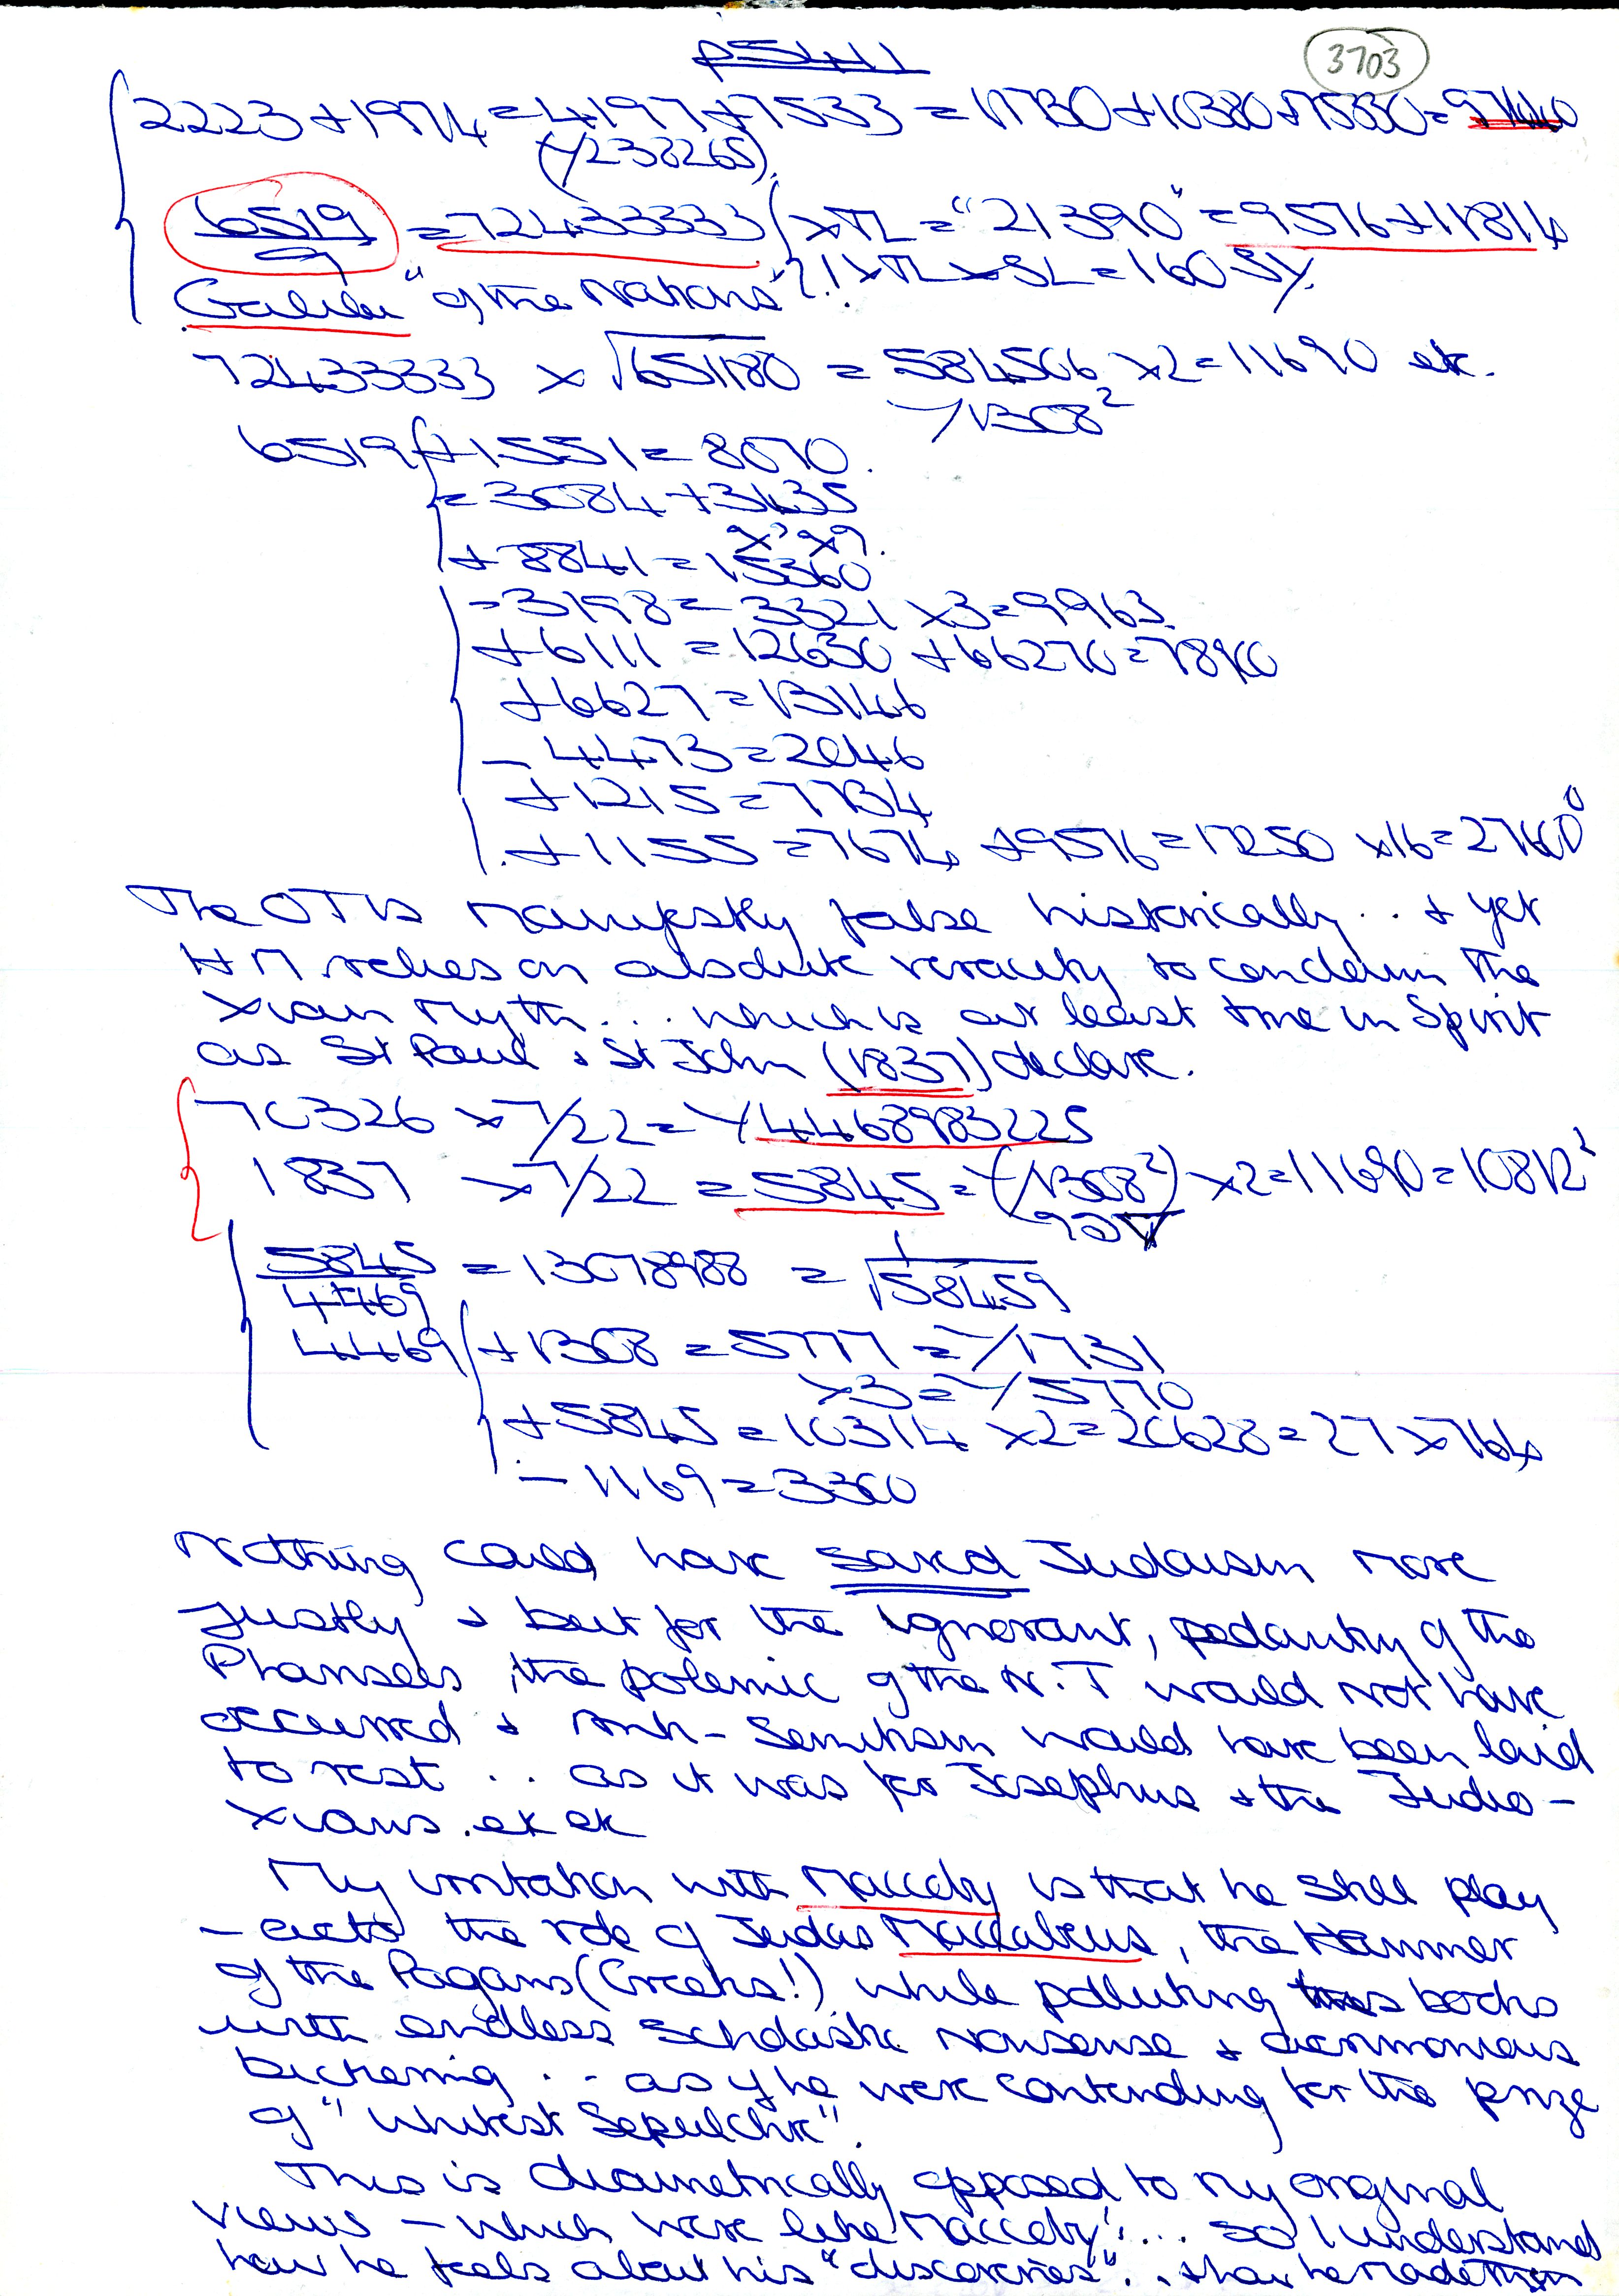 p5411
3703
2223 + 1974 = 4197 + 7533 = 11730 + 10380 + 75330 = 97440
(√238265)
6519 = 72433333 (× TL = "21390" = 9576 + 11814
9
?! × TL × SL = 160 SY.
Galilee "of the Nations"
72433333 × √651180 = 584506 × 2 = 11690 etc.
√1308²
6519 + 1551 = 8070.
= 3084 + 3435
+ 8841 = 15360
- 3198 = 3321 × 3 = 9963
+ 6111 = 12630 + 66270 = 78900
+ 6627 = 13146
- 4473 = 2046
+ 1215 = 7734
+ 1155 = 7674 + 9576 = 17250 × 16 = 27600
The OT is manifestly false historically .. & yet
HM relies on absolute veracity to condemn the
Xian Myth ... which is at least true in Spirit
as St Paul & St John (1837) declare.
70326 × 7/22 = √4468983225
1837 × 7/22 = 5845 = (√1308²) × 2 = 11690 = 10812²
5845 = 13078988 = 1
4469 √58459
4469 + 1308 = 5777 = √1731
× 3 = √5770
+ 5845 = 10314 × 2 = 20628 = 27 × 764
- 1169 = 3300
Nothing could have saved Judaism more
justly & but for the ignorant, pedantry of the
Pharisees, the polemic of the N.T would not have
occurred & Anti-Semitism would have been laid
to rest .. as it was for Josephus & the Judeo-
Xians. etc etc
My irritation with Maccoby is that he still play
- acts the role of Judas Maccabeus, the Hammer
of the Pagans (Greeks!) while polluting his books
with endless scholastic nonsense & acrimonious
bickering ... as if he were contending for the prize
of "Whitest Sepulchre".
This is diametrically opposed to my original
views - which were like Maccoby's ... so I understand
how he feels about his "discoveries" .. & how he made them